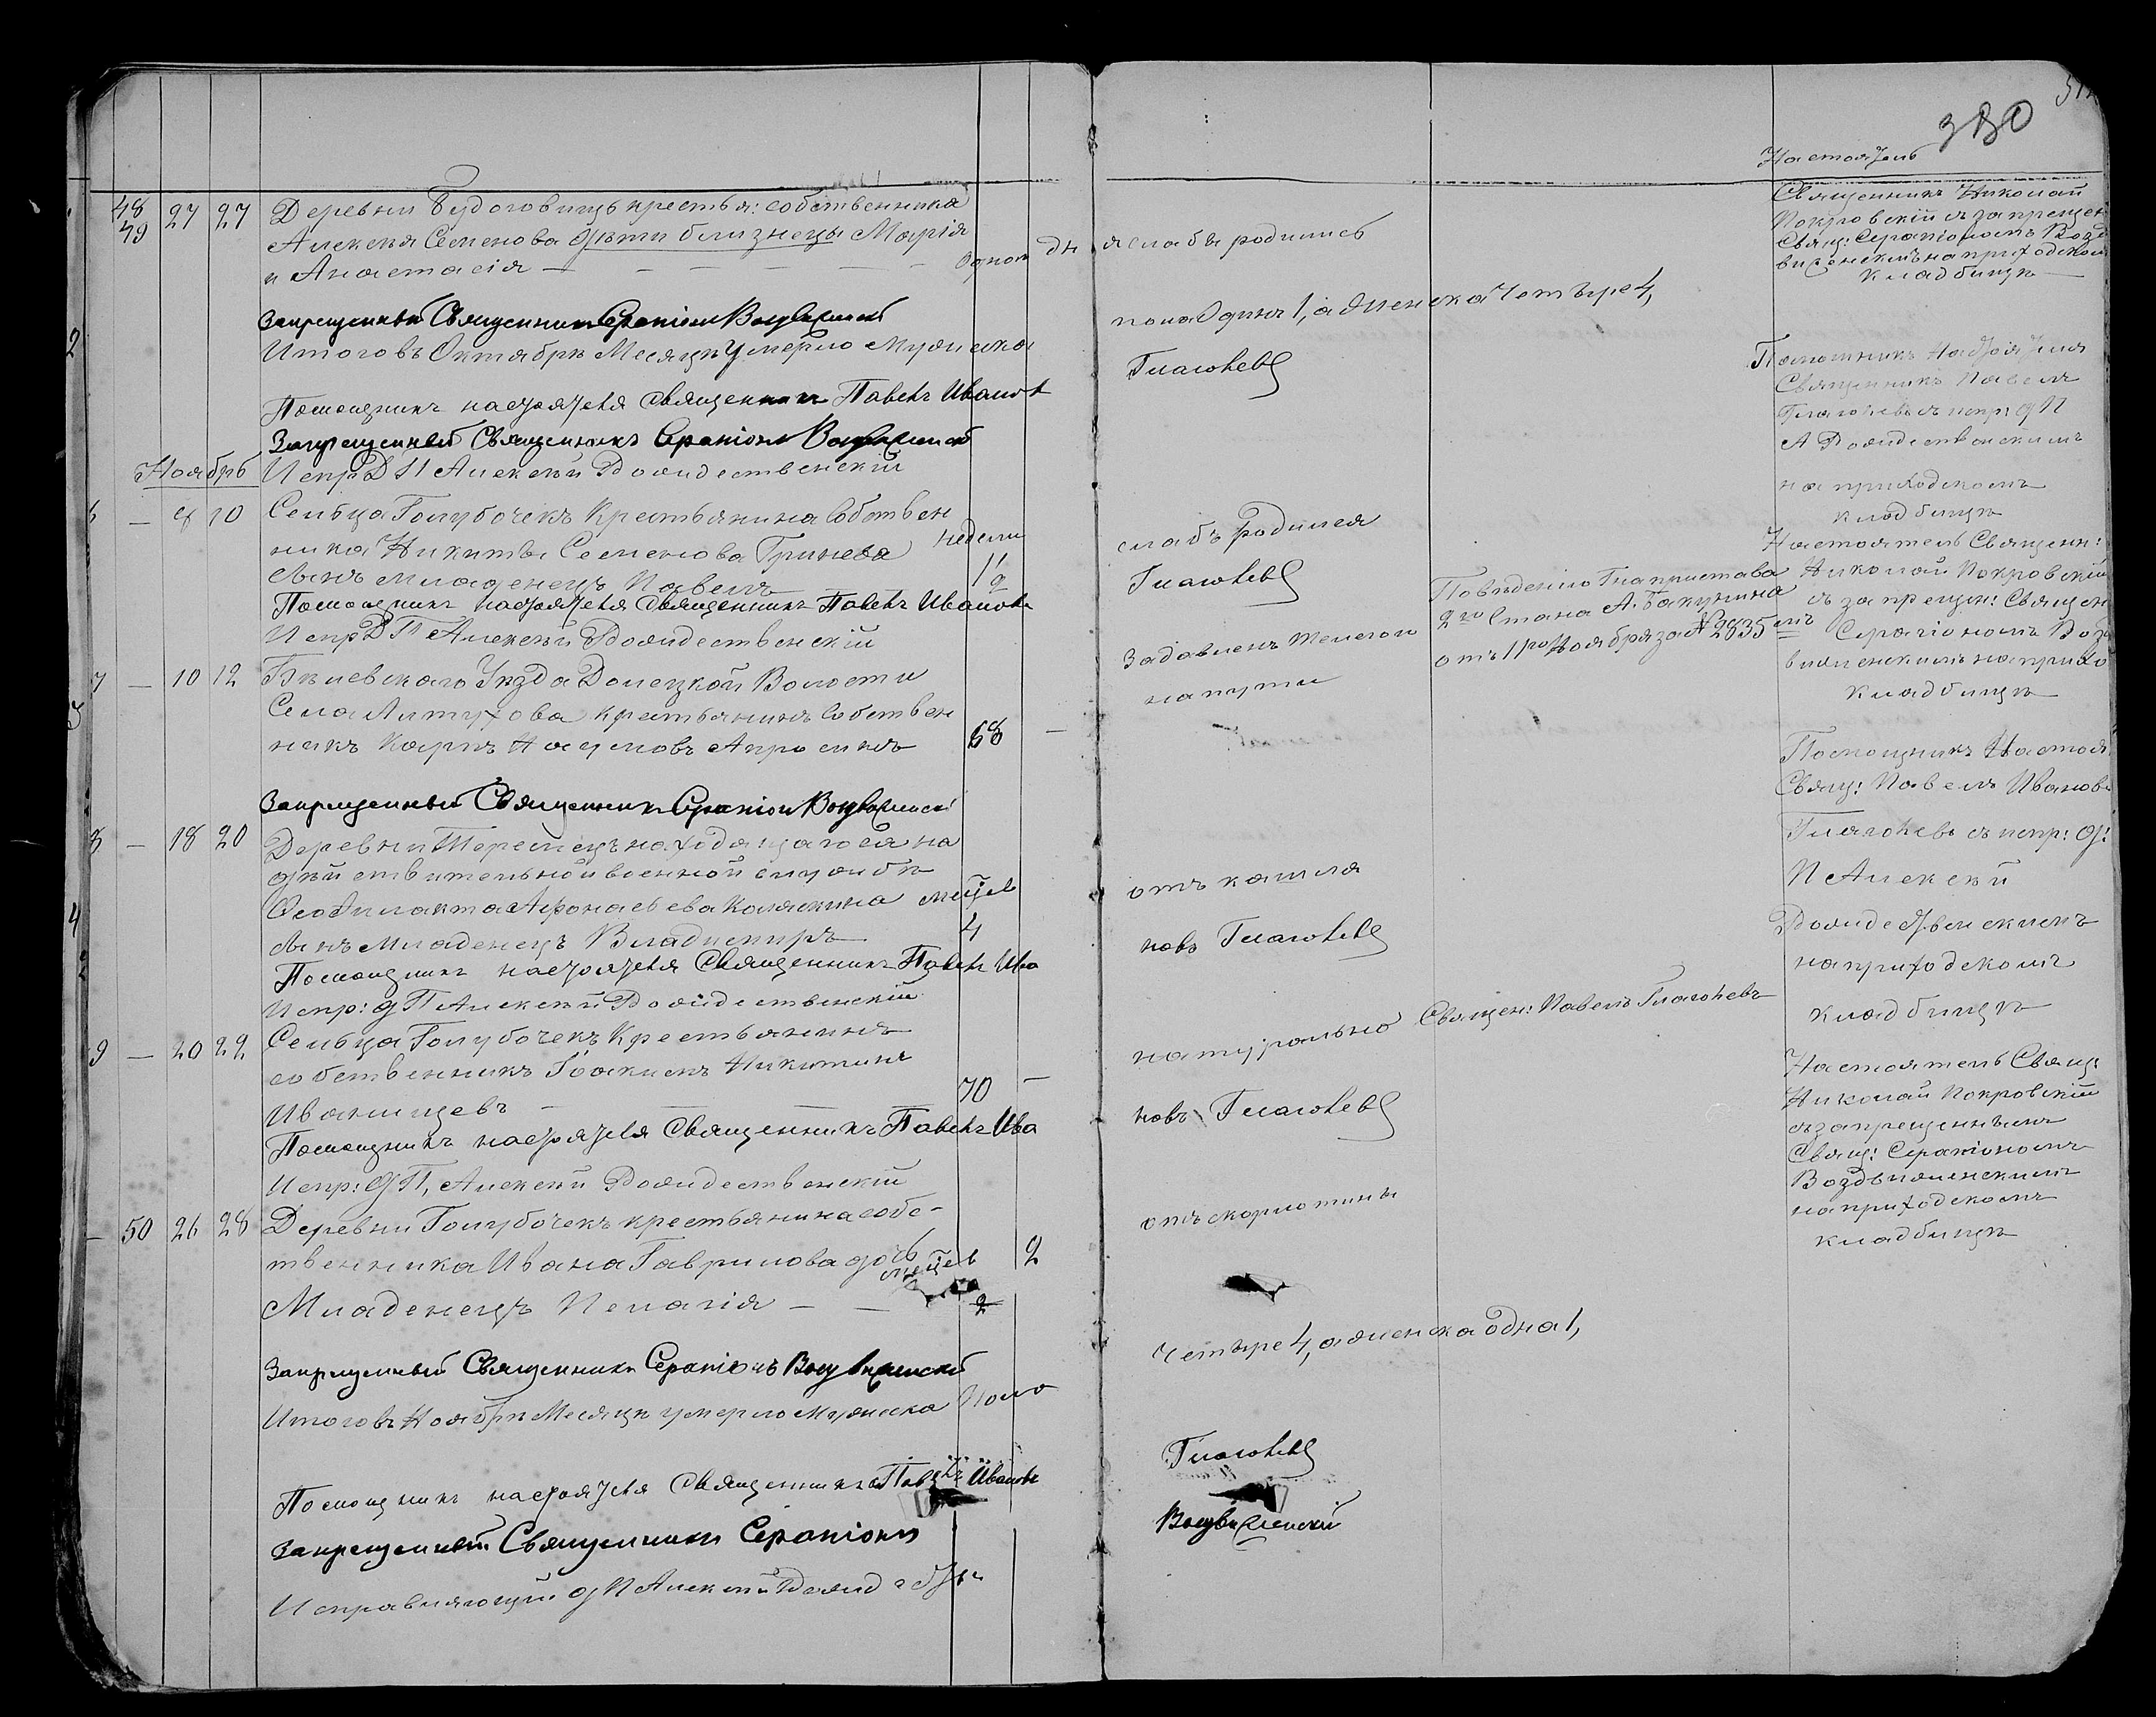 380
Настоятель
48 27 27 Деревни Будоговищъ крестья: собственника
49 Алексѣя Семенова Дѣти близнецы Марія
и Анастасія — однаго
дня слабы родились
Священникъ Николай
Покровскій съ запрещен
Свящ: Серапіономъ Возд
виженскимъ на приходском
кладбищѣ
Запрещенный Священникъ Серапіонъ Воздвиженскій
Итого въ Октябрѣ Месяцѣ умерло мужеска
пола Одинъ 1, а женска Четыре 4,
Помощникъ настоятеля Священникъ Павелъ Иванов
Глаголевъ
Запрещенный Священникъ Серапіонъ Воздвиженскій
Помошникъ Настоятеля
Священникъ Павелъ
Глаголевъ съ испр: д П
А Рождественскимъ
на приходскомъ
кладбищѣ
Ноябрь Испр Д П Алексѣй Рождественскій
6 — 8 10 Сельца Голубочекъ Крестьянина Собствен
ника Никиты Семенова Гринева недели
сынъ младенецъ Павелъ 1½
слабъ родился
Помощникъ настоятеля Священникъ Павелъ Иванов
Глаголевъ
Испр Д П Алексѣй Рождественскій
Настоятель Священн:
Николай Покровскій
съ запрещен: Священ
Серапіономъ Воз
движенскимъ на прихо
кладбищѣ
7 — 10 12 Бѣлевскаго Уѣзда Долецкой Волости
Села Литухова крестьянинъ Собствен
никъ Карпъ Наумовъ Апросинъ 68 —
Задавленъ телегой
на пути
По вѣденію Гна пристава
2го Стана А. Бакунина
отъ 11го Ноября за № 2835мъ
Запрещенный Священникъ Серапіонъ Воздвиженскій
8 — 18 20 Деревни Терепецъ находящагося на
дѣйствительной военной службѣ
Феофилакта Афонасьева Калякина месецъ
сынъ младенецъ Владимиръ 4
отъ кашля
Помощникъ настоятеля Священникъ Павелъ Ива
новъ Глаголевъ
Испр: д П Алексѣй Рождественскій
Помощникъ Настоя
Свящ: Павелъ Иванов
Глаголевъ съ испр: д:
П Алексѣй
Рождественскимъ
на приходскомъ
кладбищѣ
9 — 20 22 Сельца Голубочекъ Крестьянинъ
собственникъ Іоакимъ Никитинъ
Иванищевъ — 70 —
натурально
Священ: Павелъ Глаголевъ
Помощникъ настоятеля Священникъ Павелъ Ива
новъ Глаголевъ
Испр: Д П, Алексѣй Рождественскій
— 50 26 28 Деревни Голубочекъ крестьянина собс-
твенника Ивана Гаврилова дочь 2
Младенецъ Пелагія — — 2
отъ скарлотины
Настоятель Свящ:
Николай Покровскій
съ запрещеннымъ
Свящ: Серапіономъ
Воздвиженскимъ
на приходскомъ
кладбищѣ
Запрещенный Священникъ Серапіонъ Воздвиженскій
Итого въ Ноябрѣ Месяцѣ умерло Мужеска Пола
Четыре 4, а женска Одна 1,
Помощникъ настоятеля Священникъ Павелъ Ивановъ
Глаголевъ
Запрещенный Священникъ Серапіонъ
Воздвиженскій
Исправляющій д П Алексѣй Рождеств